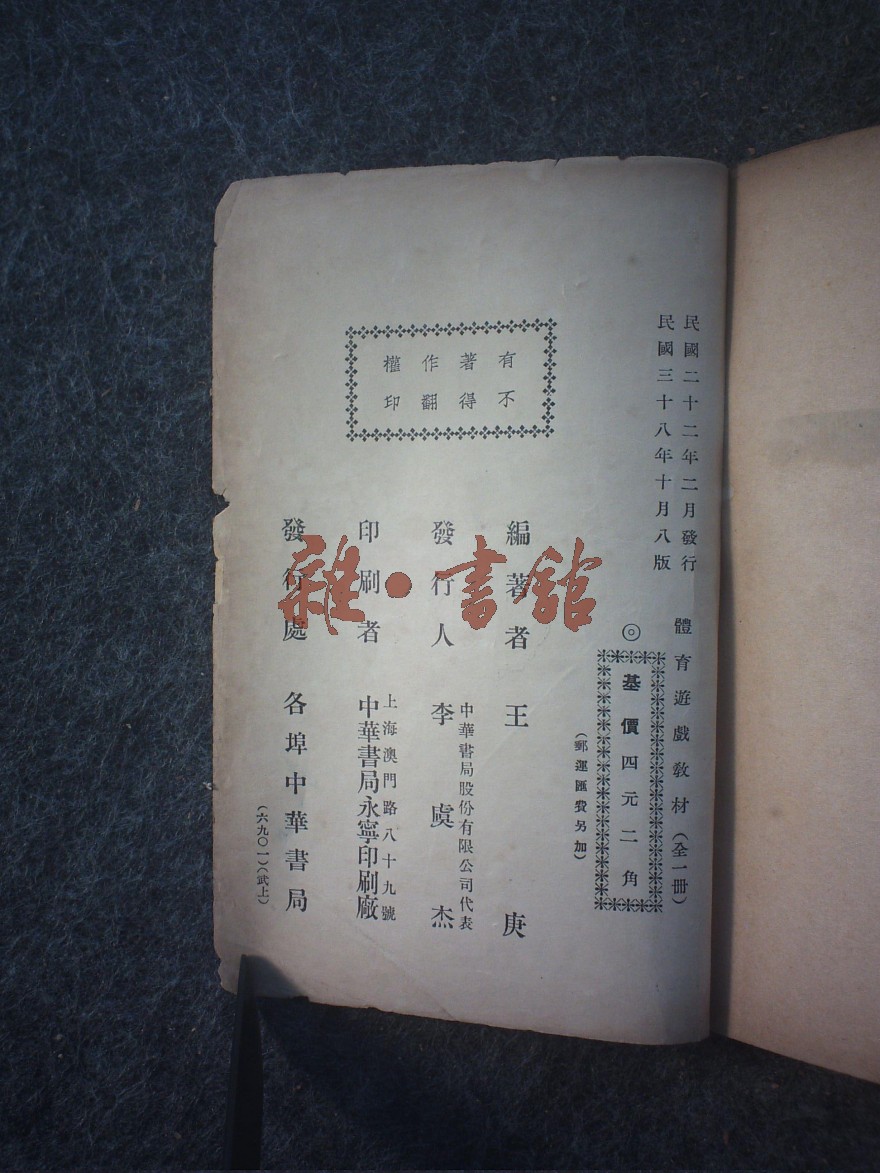 民國二十二年二月發行
民國三十八年十月八版
體育遊戲教材（全一冊）
◎
基價四元二角
（郵運匯費另加）
有著作權
不得翻印
編著者 王庚
發行人 李虞杰
中華書局股份有限公司代表
印刷者 中華書局永寧印刷廠
上海澳門路八十九號
發行處 各埠中華書局
（六九〇一）（武上）
雜·書館